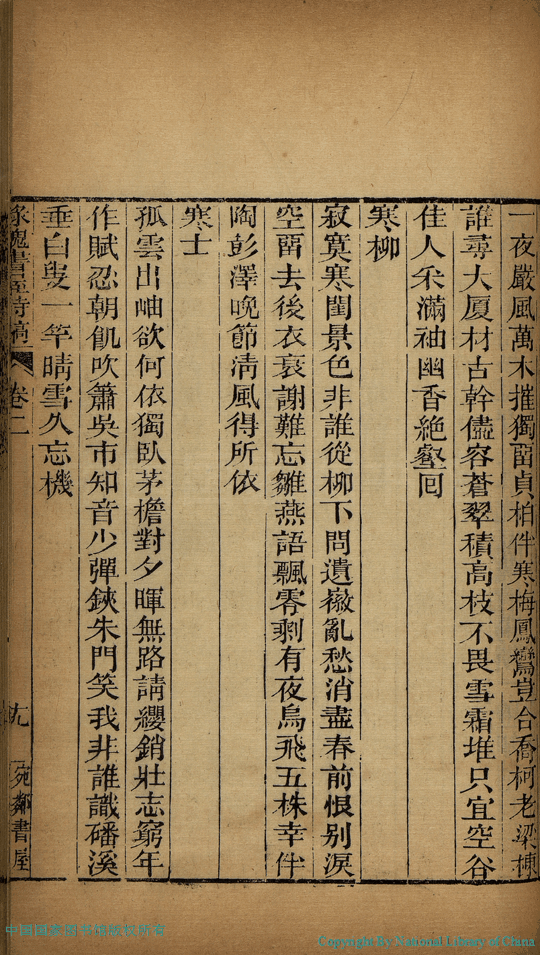 一夜嚴風萬木摧獨留貞柏伴寒梅鳳鸞豈合喬柯老梁棟
誰尋大厦材古幹儘容蒼翠積高枝不畏雪霜堆只宜空谷
佳人采滿袖幽香絶壑回
寒柳
寂寞寒閨景色非誰從柳下問遺徽亂愁消盡春前恨别淚
空畱去後衣衰謝難忘雛燕語飄零剩有夜烏飛五株幸伴
陶彭澤晚節淸風得所依
寒士
孤雲出岫欲何依獨臥茅檐對夕暉無路請纓銷壯志窮年
作賦忍朝飢吹簫吳市知音少彈鋏朱門笑我非誰識磻溪
垂白叟一竿晴雪久忘機
書屋詩稿
卷二
宛鄰書屋
中国国家图书馆版权所有
Copyright By National Library of China